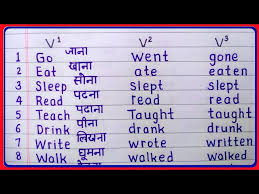 V¹ V² V³
1 Go जाना went gone
2 Eat खाना ate eaten
3 Sleep सोना slept slept
4 Read पढना read read
5 Teach पढाना Taught taught
6 Drink पीना drank drunk
7 Write लिखना wrote written
8 Walk घूमना walked walked